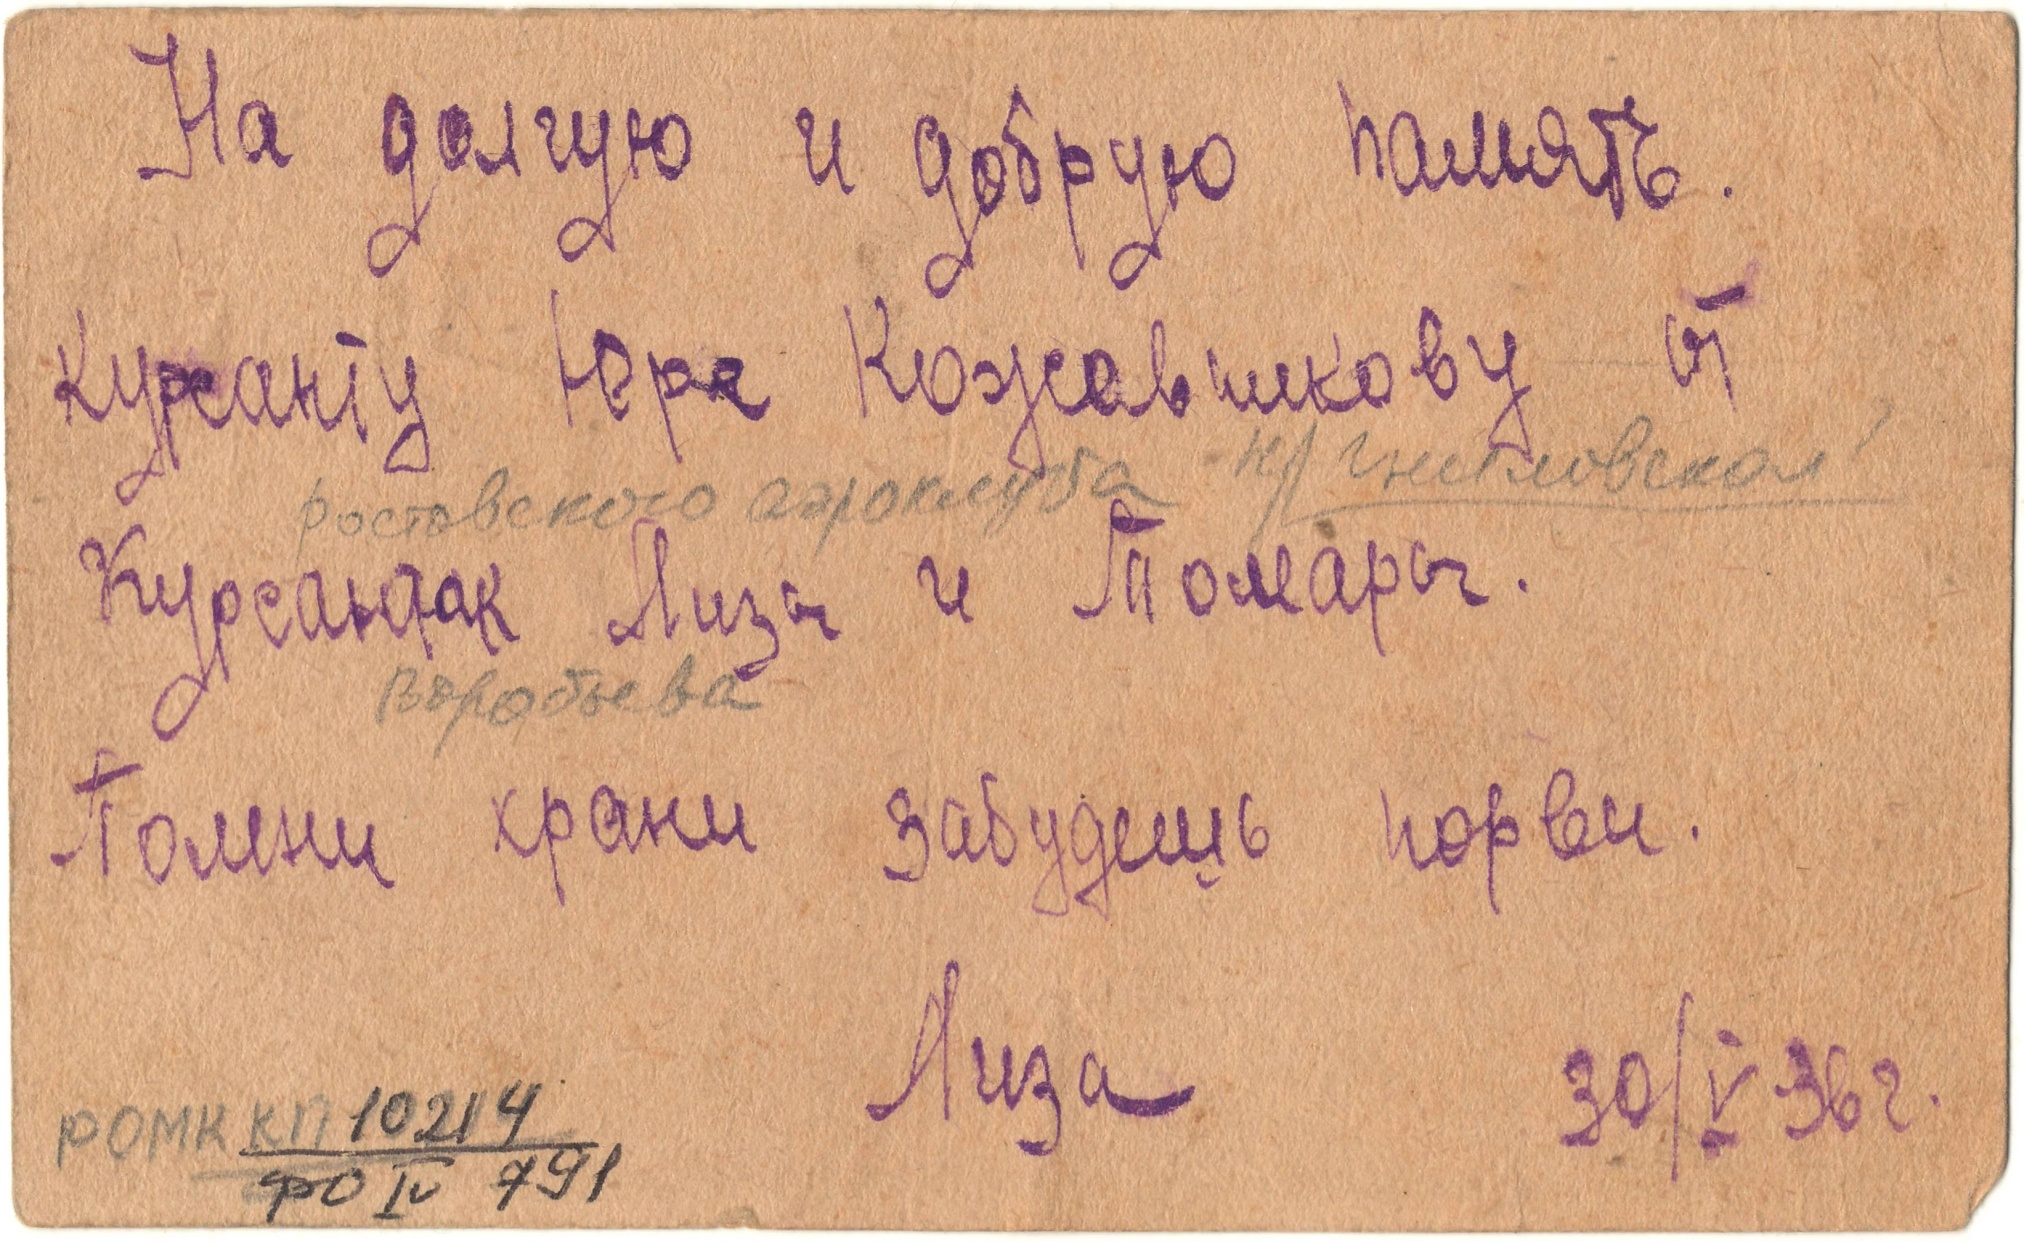 На долгую и добрую память.
Юре Кожевникову от
ростовского аэроклуба н/Гниловской
Лизы и Томары.
Воробьева
Помни храни забудешь порви.
Лиза 30/V 36 г.
РОМК КП 10214
ФО IV 791